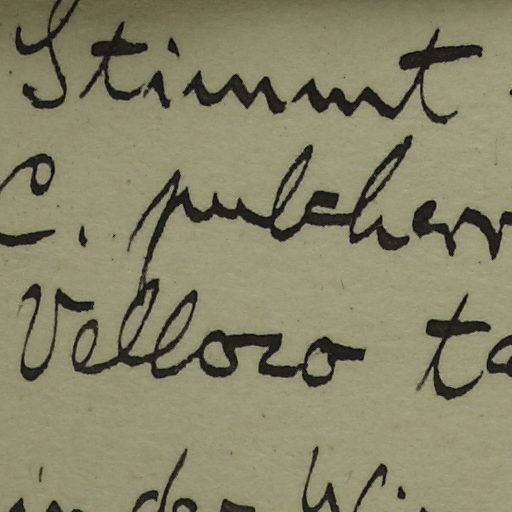 Stimmt
C. pulcherr
Vellozo ta
in der Wi